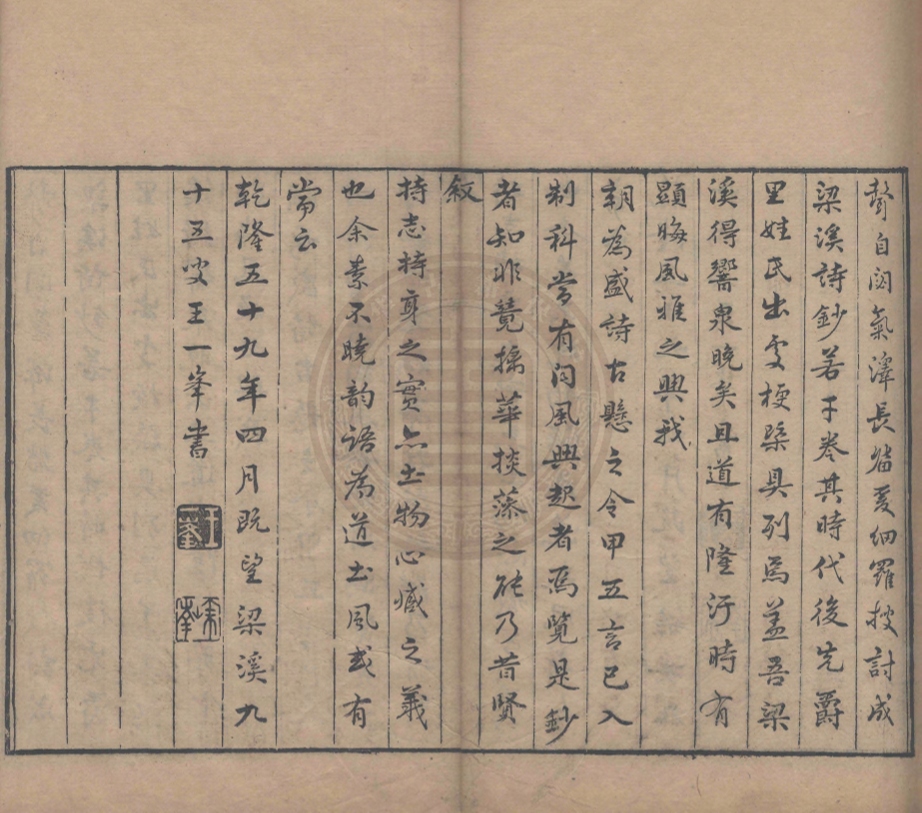 聲自閟氣澤長留爰網羅搜討成
梁溪詩鈔若干卷其時代後先爵
里姓氏出處梗槩具列焉盖吾梁
溪得響泉晚矣且道有隆汙時有
顯晦風雅之興我
朝為盛詩古懸之令甲五言已入
制科當有闻風興起者焉覽是鈔
者知非競摛華掞藻之能乃昔賢
持志持身之實亦土物心臧之義
也余素不曉韵語为道土風或有
當云
乾隆五十九年四月既望梁溪九
十五叟王一峯書
王一峯